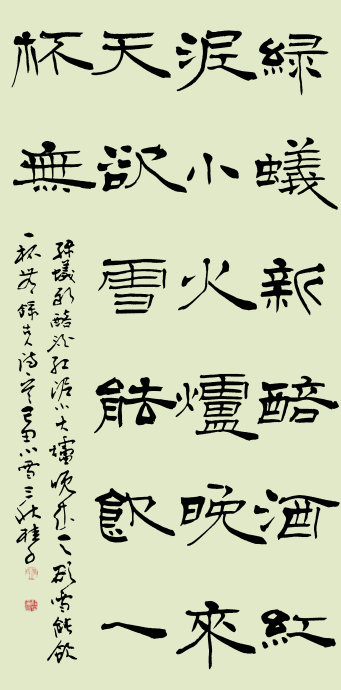 綠蟻新醅酒紅
泥小火爐晚來
天欲雪能飲一
杯無
綠蟻新醅酒紅泥小火爐晚來天欲雪能飲
一杯無 詩 小雪三秋桂子